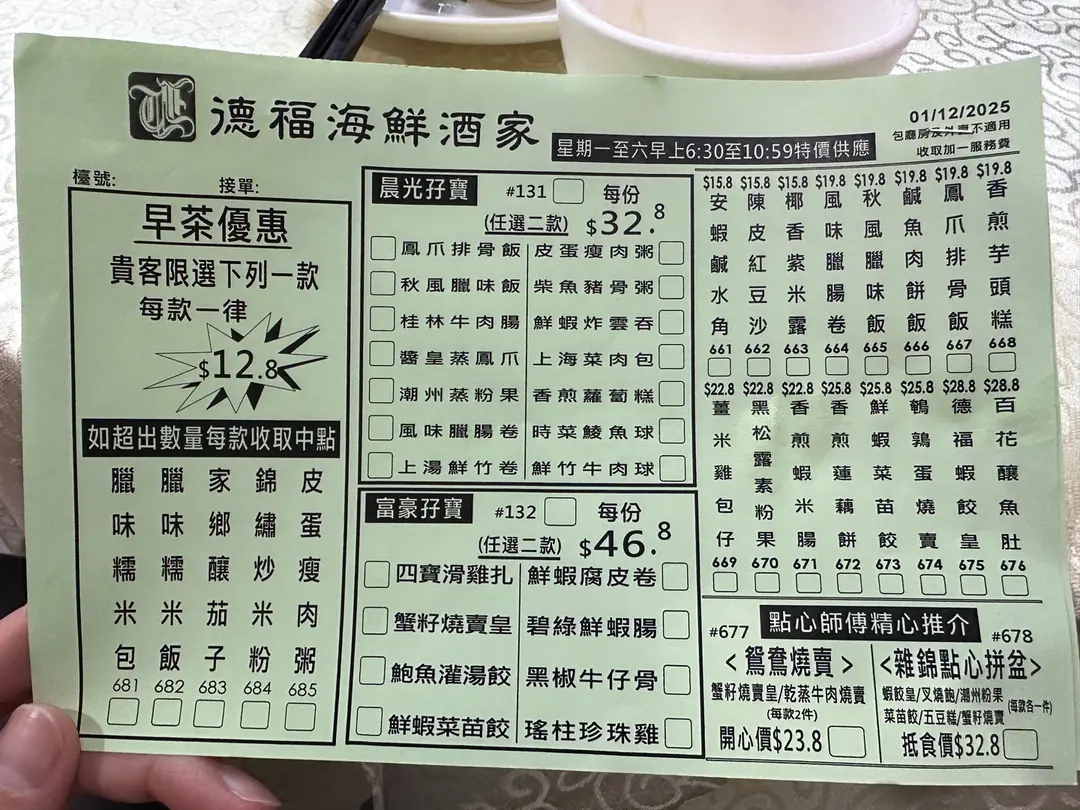 德福海鮮酒家
01/12/2025
包廳房及外賣不適用
收取加一服務費
星期一至六早上6:30至10:59特價供應
檯號:
接單:
早茶優惠
貴客限選下列一款
每款一律
$12.8
如超出數量每款收取中點
臘味糯米包 681
臘味糯米飯 682
家鄉釀茄子 683
錦繡炒米粉 684
皮蛋瘦肉粥 685
晨光孖寶 #131 每份
(任選二款) $32.8
鳳爪排骨飯 皮蛋瘦肉粥
秋風臘味飯 柴魚豬骨粥
桂林牛肉腸 鮮蝦炸雲吞
醬皇蒸鳳爪 上海菜肉包
潮州蒸粉果 香煎蘿蔔糕
風味臘腸卷 時菜鯪魚球
上湯鮮竹卷 鮮竹牛肉球
富豪孖寶 #132 每份
(任選二款) $46.8
四寶滑雞扎 鮮蝦腐皮卷
蟹籽燒賣皇 碧綠鮮蝦腸
鮑魚灌湯餃 黑椒牛仔骨
鮮蝦菜苗餃 瑤柱珍珠雞
$15.8 安蝦鹹水角 661
$15.8 陳皮紅豆沙 662
$15.8 椰香紫米露 663
$19.8 風味臘腸卷 664
$19.8 秋風臘味飯 665
$19.8 鹹魚肉餅飯 666
$19.8 鳳爪排骨飯 667
$19.8 香煎芋頭糕 668
$22.8 薑米雞包仔 669
$22.8 黑松露素粉果 670
$22.8 香煎蝦米腸 671
$25.8 香煎蓮藕餅 672
$25.8 鮮蝦菜苗餃 673
$25.8 鵪鶉蛋燒賣 674
$28.8 德福蝦餃皇 675
$28.8 百花釀魚肚 676
點心師傅精心推介
#677
<鴛鴦燒賣>
蟹籽燒賣皇/乾蒸牛肉燒賣
(每款2件)
開心價$23.8
#678
<雜錦點心拼盆>
蝦餃皇/叉燒飽/潮州粉果
菜苗餃/五豆糕/蟹籽燒賣
(每款各一件)
抵食價$32.8